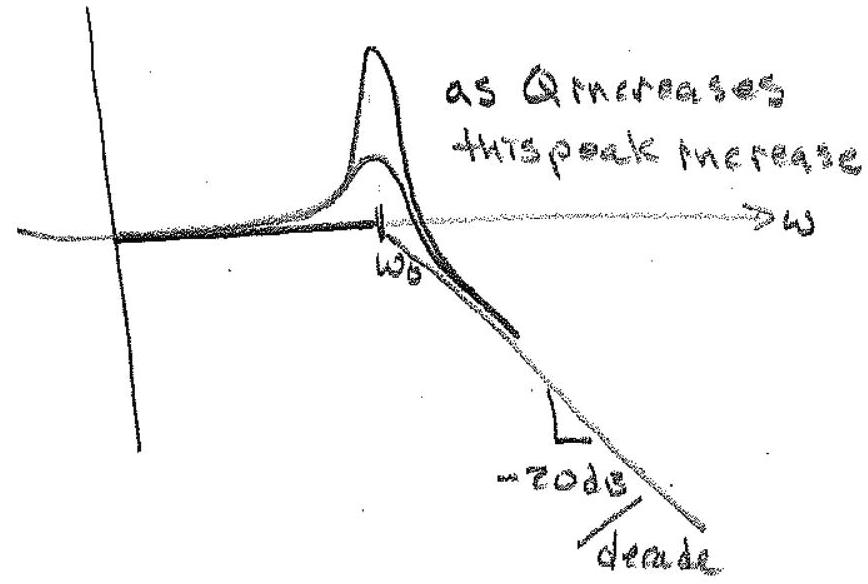 as Q increases
this peak increase
ω
ω₀
-20dB
/
decade